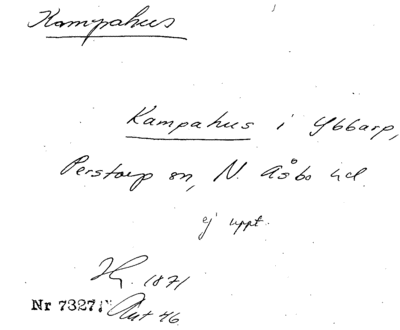 Kampahus
Kampahus i Ybbarp,
Perstorp sn, N. Åsbo hd.
ej uppt.
Hg. 1871
Nr 7327
Aut 46.